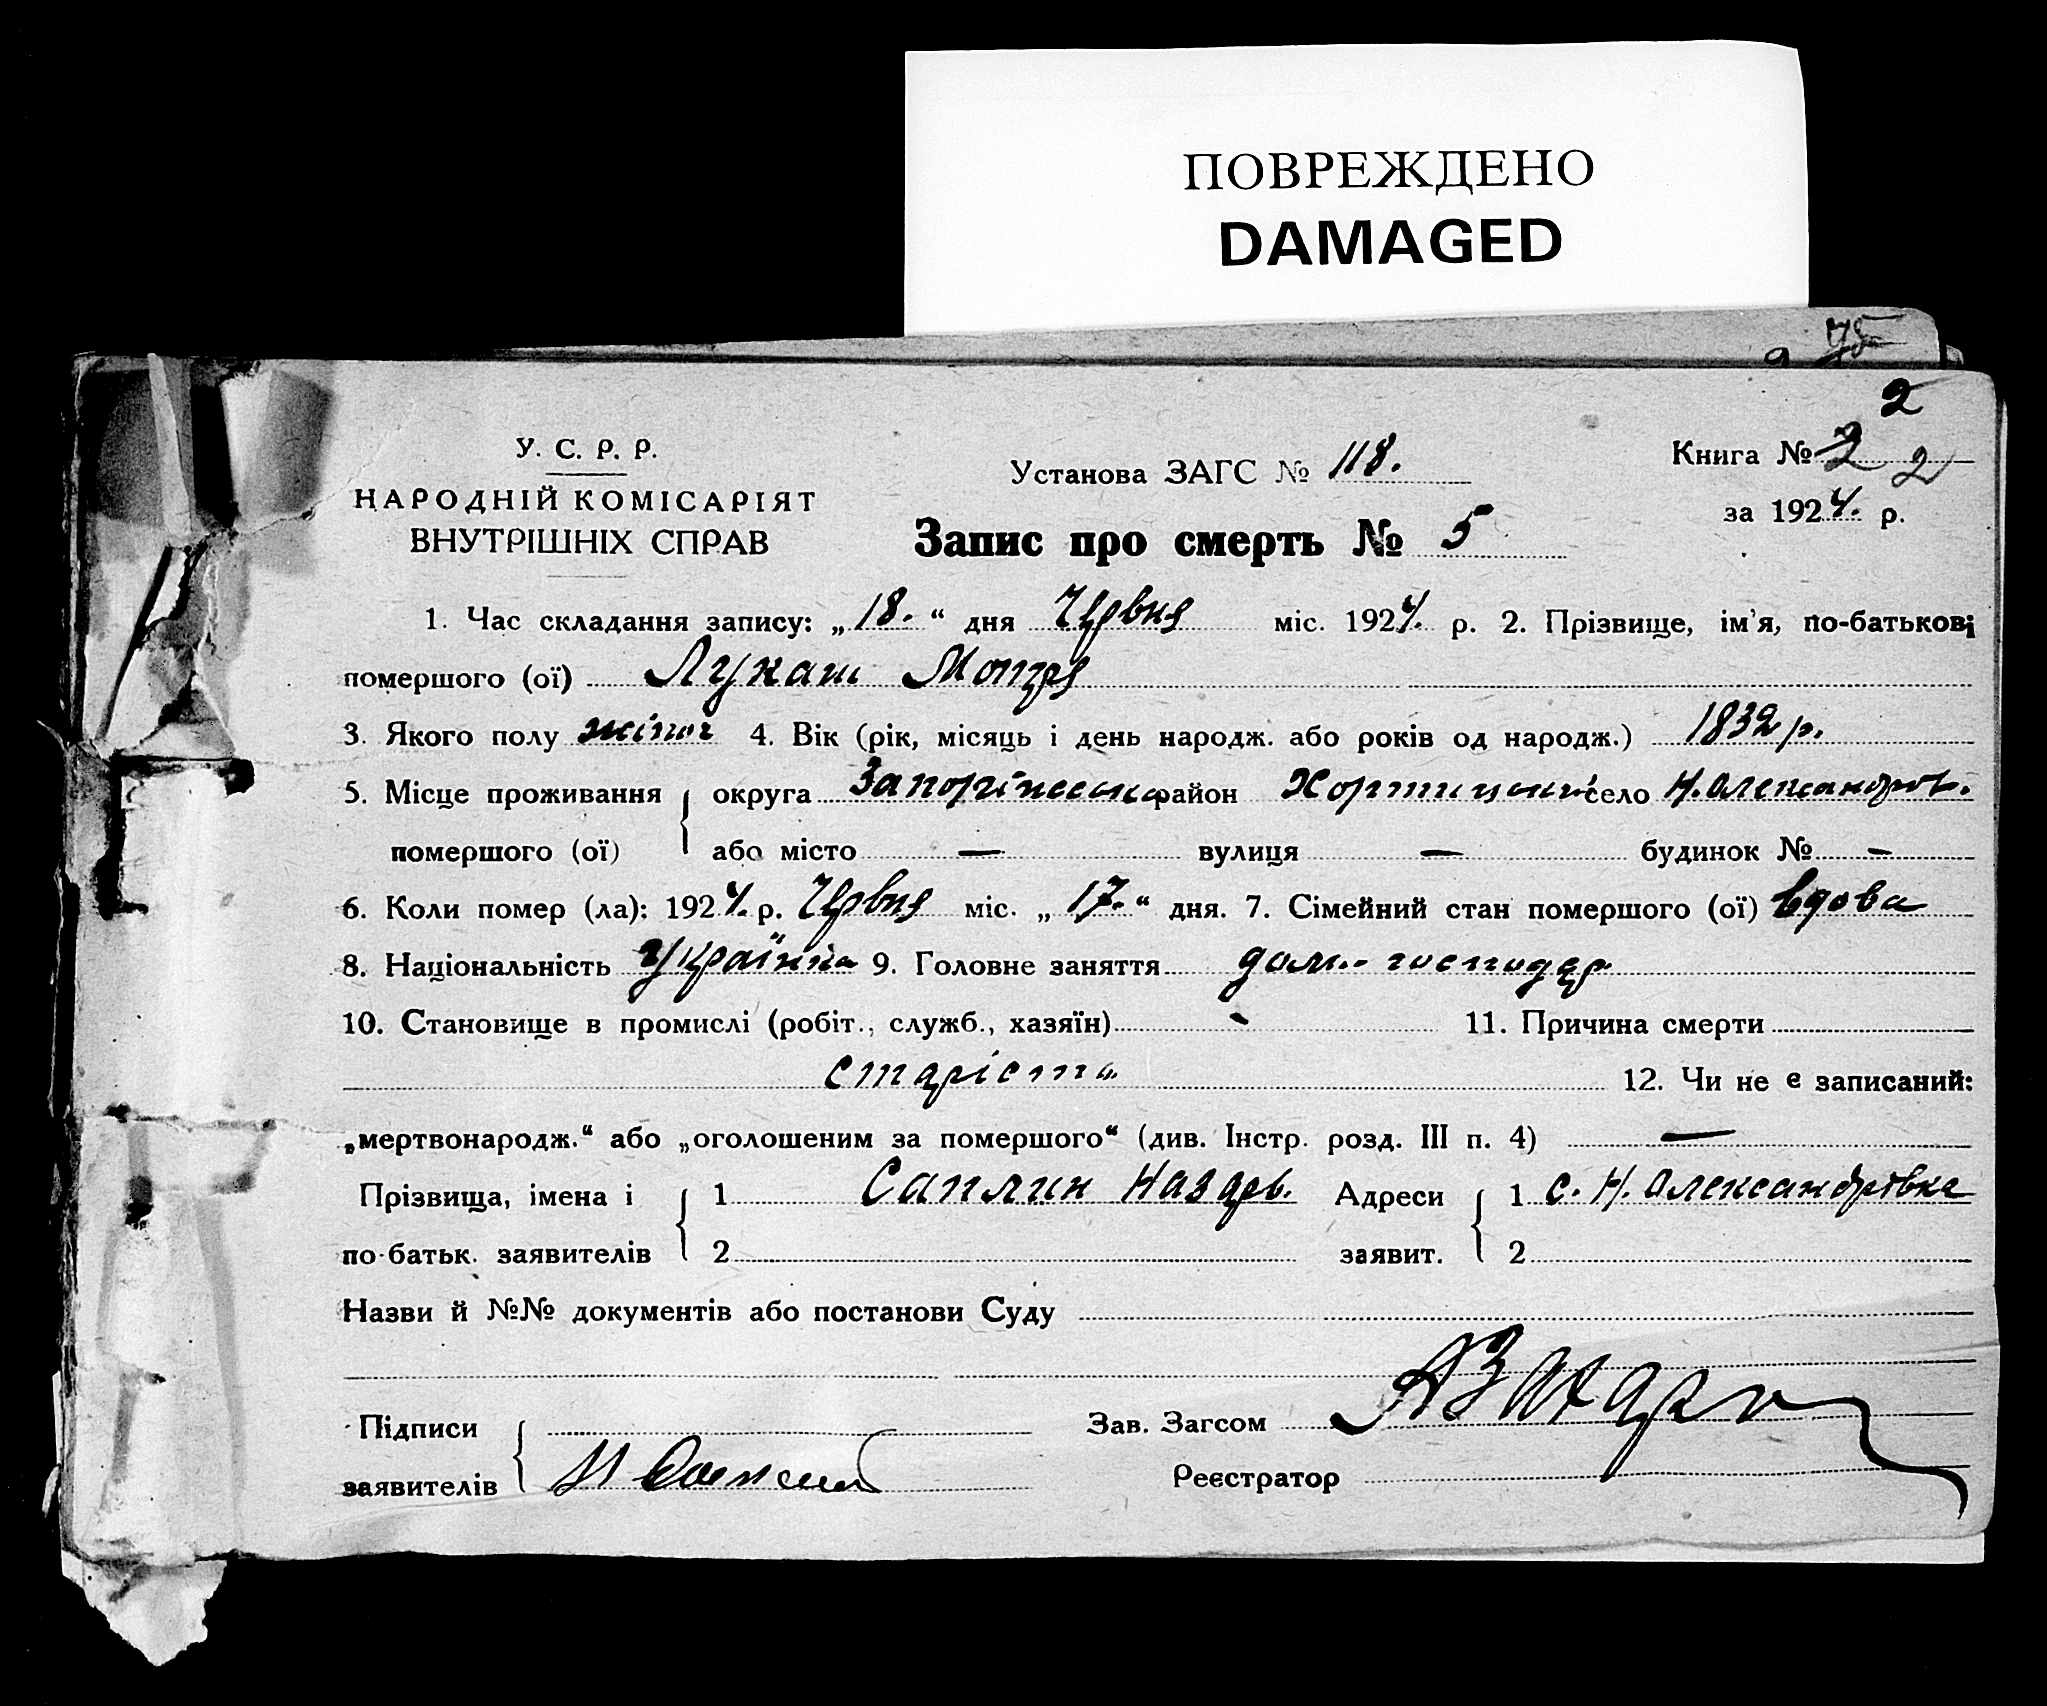 ПОВРЕЖДЕНО
DAMAGED
75
2
У. С. Р. Р.
НАРОДНІЙ КОМІСАРІЯТ
ВНУТРІШНІХ СПРАВ
Установа ЗАГС № 118.
Книга № 2 2
за 1924. р.
Запис про смерть № 5
1. Час складання запису: „18.“ дня Червня міс. 1924. р. 2. Прізвище, ім'я, по-батькові
помершого (ої) Лукаш Мотря
3. Якого полу жіноч 4. Вік (рік, місяць і день народж. або років од народж.) 1832 р.
5. Місце проживання округа Запоріжська район Хортицький село Н. Александров.
помершого (ої) або місто — вулиця — будинок № —
6. Коли помер (ла): 1924. р. Червня міс. „17.“ дня. 7. Сімейний стан помершого (ої) вдова
8. Національність Українка 9. Головне заняття дом. господар
10. Становище в промислі (робіт., служб., хазяїн) - 11. Причина смерти
старість 12. Чи не є записаний:
„мертвонародж.“ або „оголошеним за помершого“ (див. Інстр. розд. III п. 4) —
Прізвища, імена і 1 Саплин Назарь. Адреси 1 с. Н. Александрівка
по-батьк. заявителів 2 заявит. 2
Назви й №№ документів або постанови Суду
Підписи
Зав. Загсом
заявителів
Реєстратор